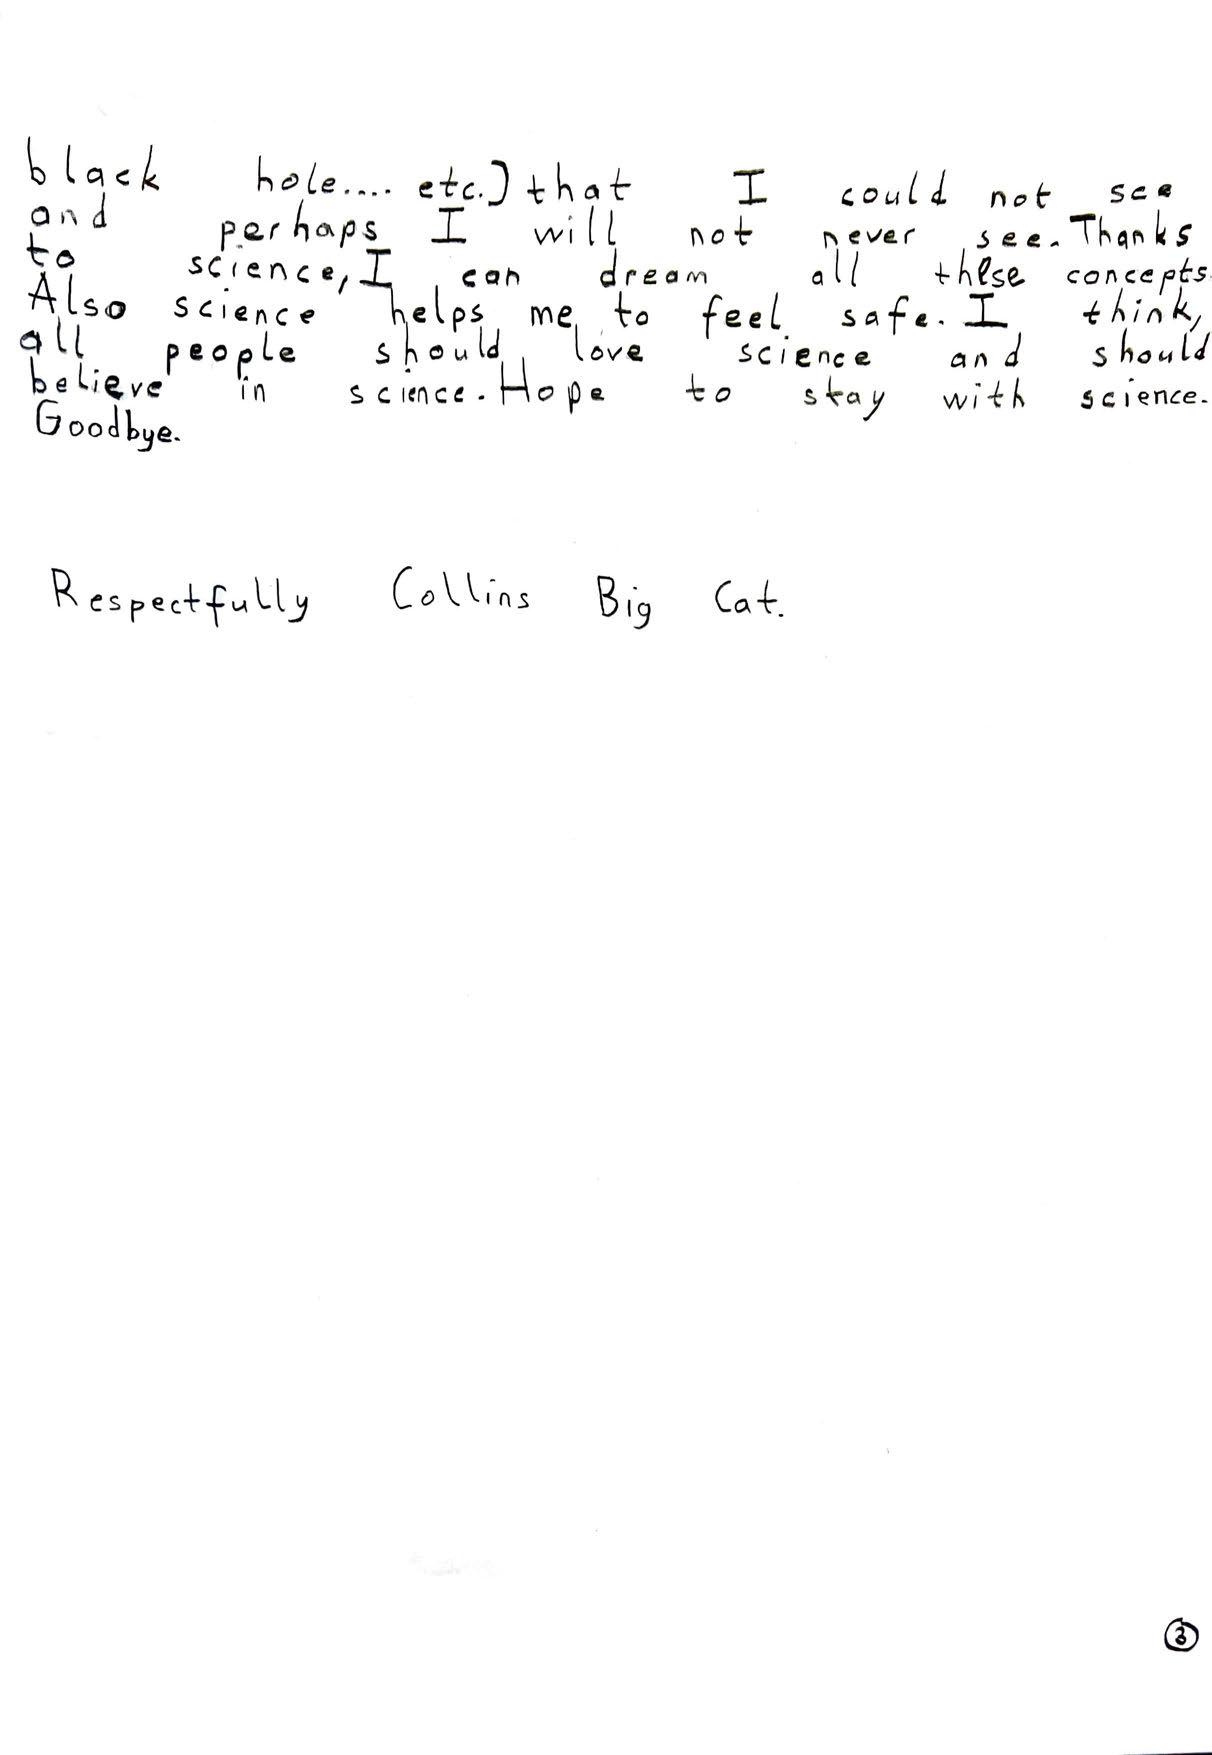 black hole.... etc.) that I could not see
and perhaps I will not never see. Thanks
to science, I can dream all these concepts.
Also science helps me to feel safe. I think,
all people should love science and should
believe in science. Hope to stay with science.
Goodbye.
Respectfully Collins Big Cat.